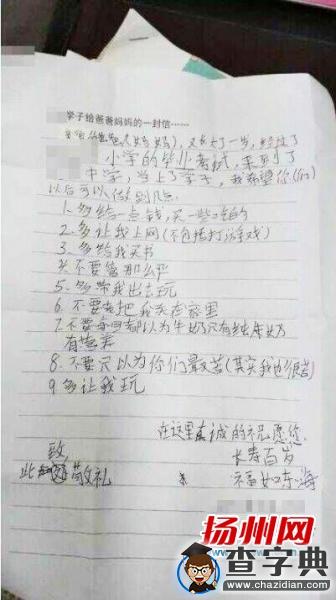 学子给爸爸妈妈的一封信……
爸爸妈妈），又长大了一岁，经过了
小学的毕业考试，来到了
中学，当上了学子，我希望你(们)
以后可以做到几点：
1.多给一点钱，买一些吃的
2.多让我上网(不包括打游戏)
3.多给我买书
4.不要管那么严
5.多带我出去玩
6.不要老把我关在家里
7.不要每回都以为牛奶只有纯牛奶
有营养
8.不要只以为你们最苦(其实我也很苦)
9.多让我玩
在这里真诚的祝愿您
致 长寿百岁
此 敬礼 福如东海
扬州网
查字典
www.chazidian.com